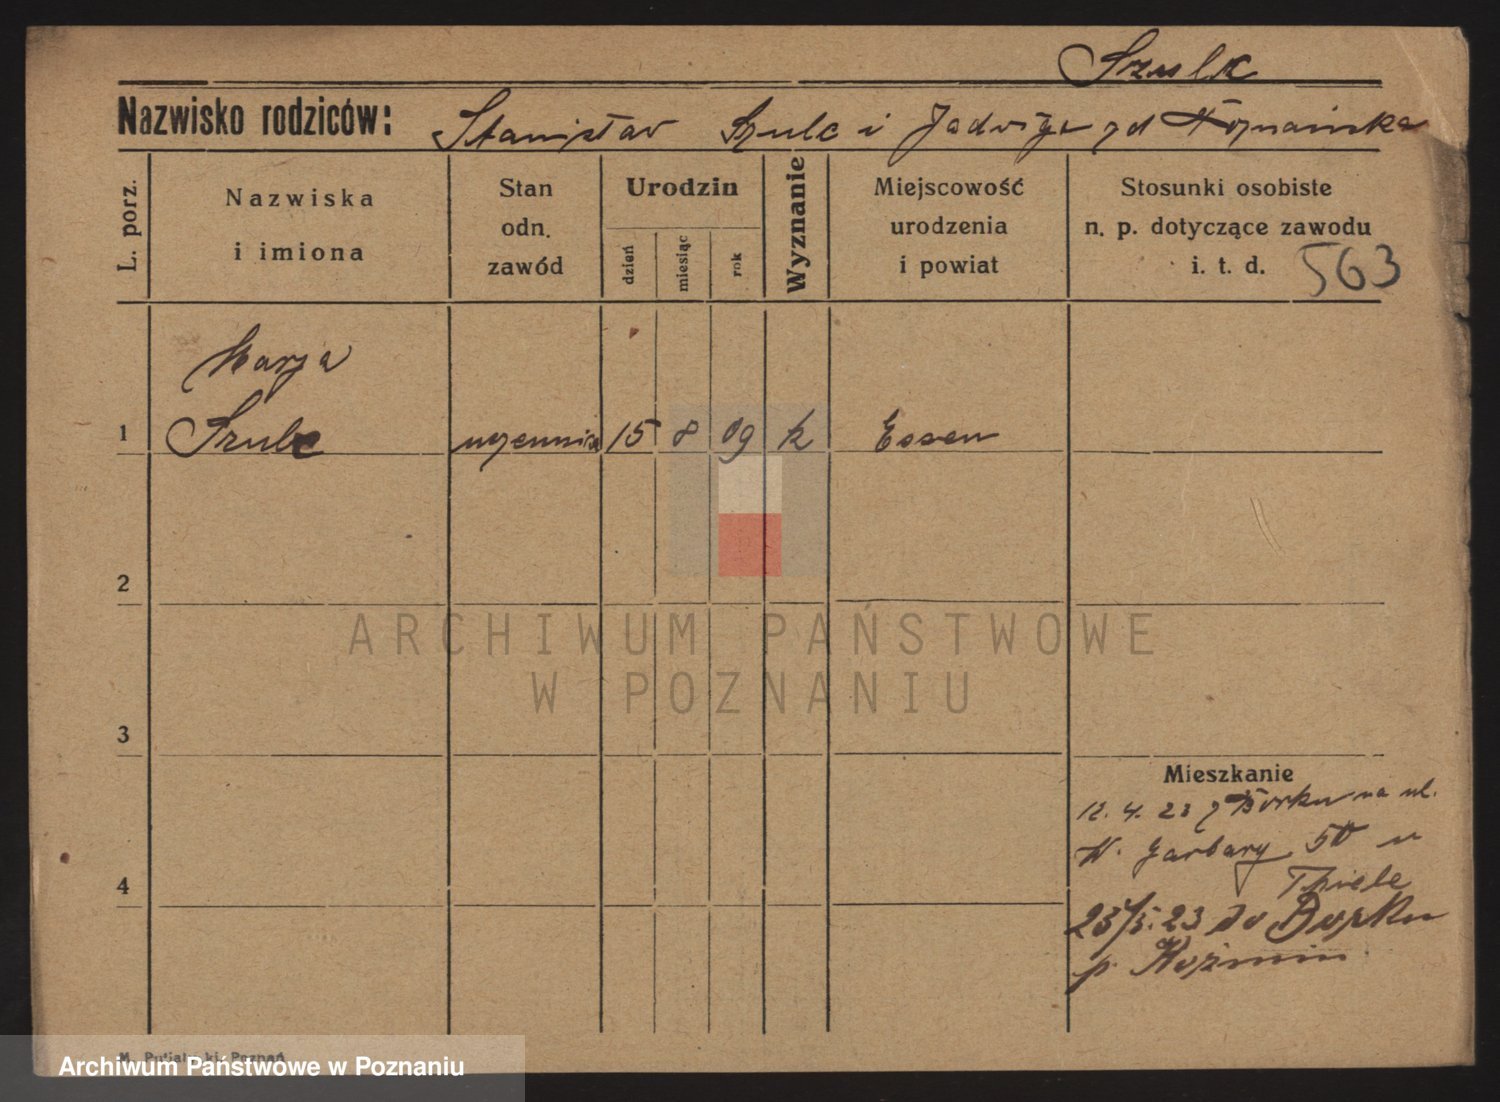 Szulc
Nazwisko rodziców: Stanisław Szulc i Jadwiga zd
L. porz.
Nazwiska
i imiona
Stan
odn.
zawód
Urodzin
dzień
miesiąc
rok
Wyznanie
Miejscowość
urodzenia
i powiat
Stosunki osobiste
n. p. dotyczące zawodu
i. t. d.
563
Marja
1 Szulc uczennica 15 8 09 k Essen
2
ARCHIWUM PAŃSTWOWE
W POZNANIU
3
Mieszkanie
12. 4. 23 z Borku na ul.
W. Garbary 50 u
4
Thiele
25/5. 23 do Borku
p. Koźmin
M. Putiatycki, Poznań
Archiwum Państwowe w Poznaniu